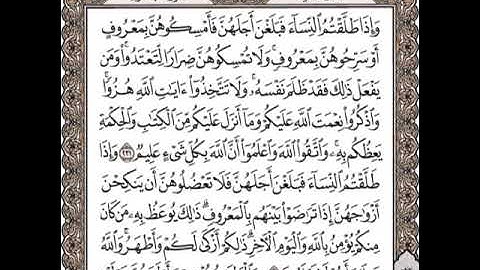 وَإِذَا طَلَّقْتُمُ ٱلنِّسَآءَ فَبَلَغْنَ أَجَلَهُنَّ فَأَمْسِكُوهُنَّ بِمَعْرُوفٍ
أَوْ سَرِّحُوهُنَّ بِمَعْرُوفٍ ۚ وَلَا تُمْسِكُوهُنَّ ضِرَارًا لِّتَعْتَدُوا۟ ۚ وَمَن
يَفْعَلْ ذَٰلِكَ فَقَدْ ظَلَمَ نَفْسَهُۥ ۚ وَلَا تَتَّخِذُوٓا۟ ءَايَٰتِ ٱللَّهِ هُزُوًا ۚ
وَٱذْكُرُوا۟ نِعْمَتَ ٱللَّهِ عَلَيْكُمْ وَمَآ أَنزَلَ عَلَيْكُم مِّنَ ٱلْكِتَٰبِ وَٱلْحِكْمَةِ
يَعِظُكُم بِهِۦ ۚ وَٱتَّقُوا۟ ٱللَّهَ وَٱعْلَمُوٓا۟ أَنَّ ٱللَّهَ بِكُلِّ شَىْءٍ عَلِيمٌ ٢٣١ وَإِذَا
طَلَّقْتُمُ ٱلنِّسَآءَ فَبَلَغْنَ أَجَلَهُنَّ فَلَا تَعْضُلُوهُنَّ أَن يَنكِحْنَ
أَزْوَٰجَهُنَّ إِذَا تَرَٰضَوْا۟ بَيْنَهُم بِٱلْمَعْرُوفِ ۗ ذَٰلِكَ يُوعَظُ بِهِۦ مَن كَانَ
مِنكُمْ يُؤْمِنُ بِٱللَّهِ وَٱلْيَوْمِ ٱلْءَاخِرِ ۗ ذَٰلِكُمْ أَزْكَىٰ لَكُمْ وَأَطْهَرُ ۗ وَٱللَّهُ